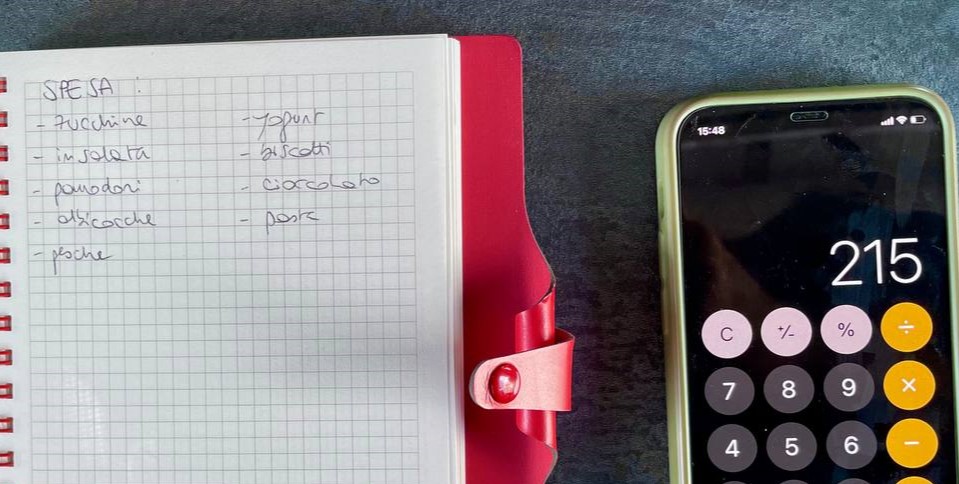 SPESA :
- zucchine
- insalata
- pomodori
- albicocche
- pesche
- yogurt
- biscotti
- cioccolato
- pasta
15:48
215
C +/- % ÷
7 8 9 ×
4 5 6 −